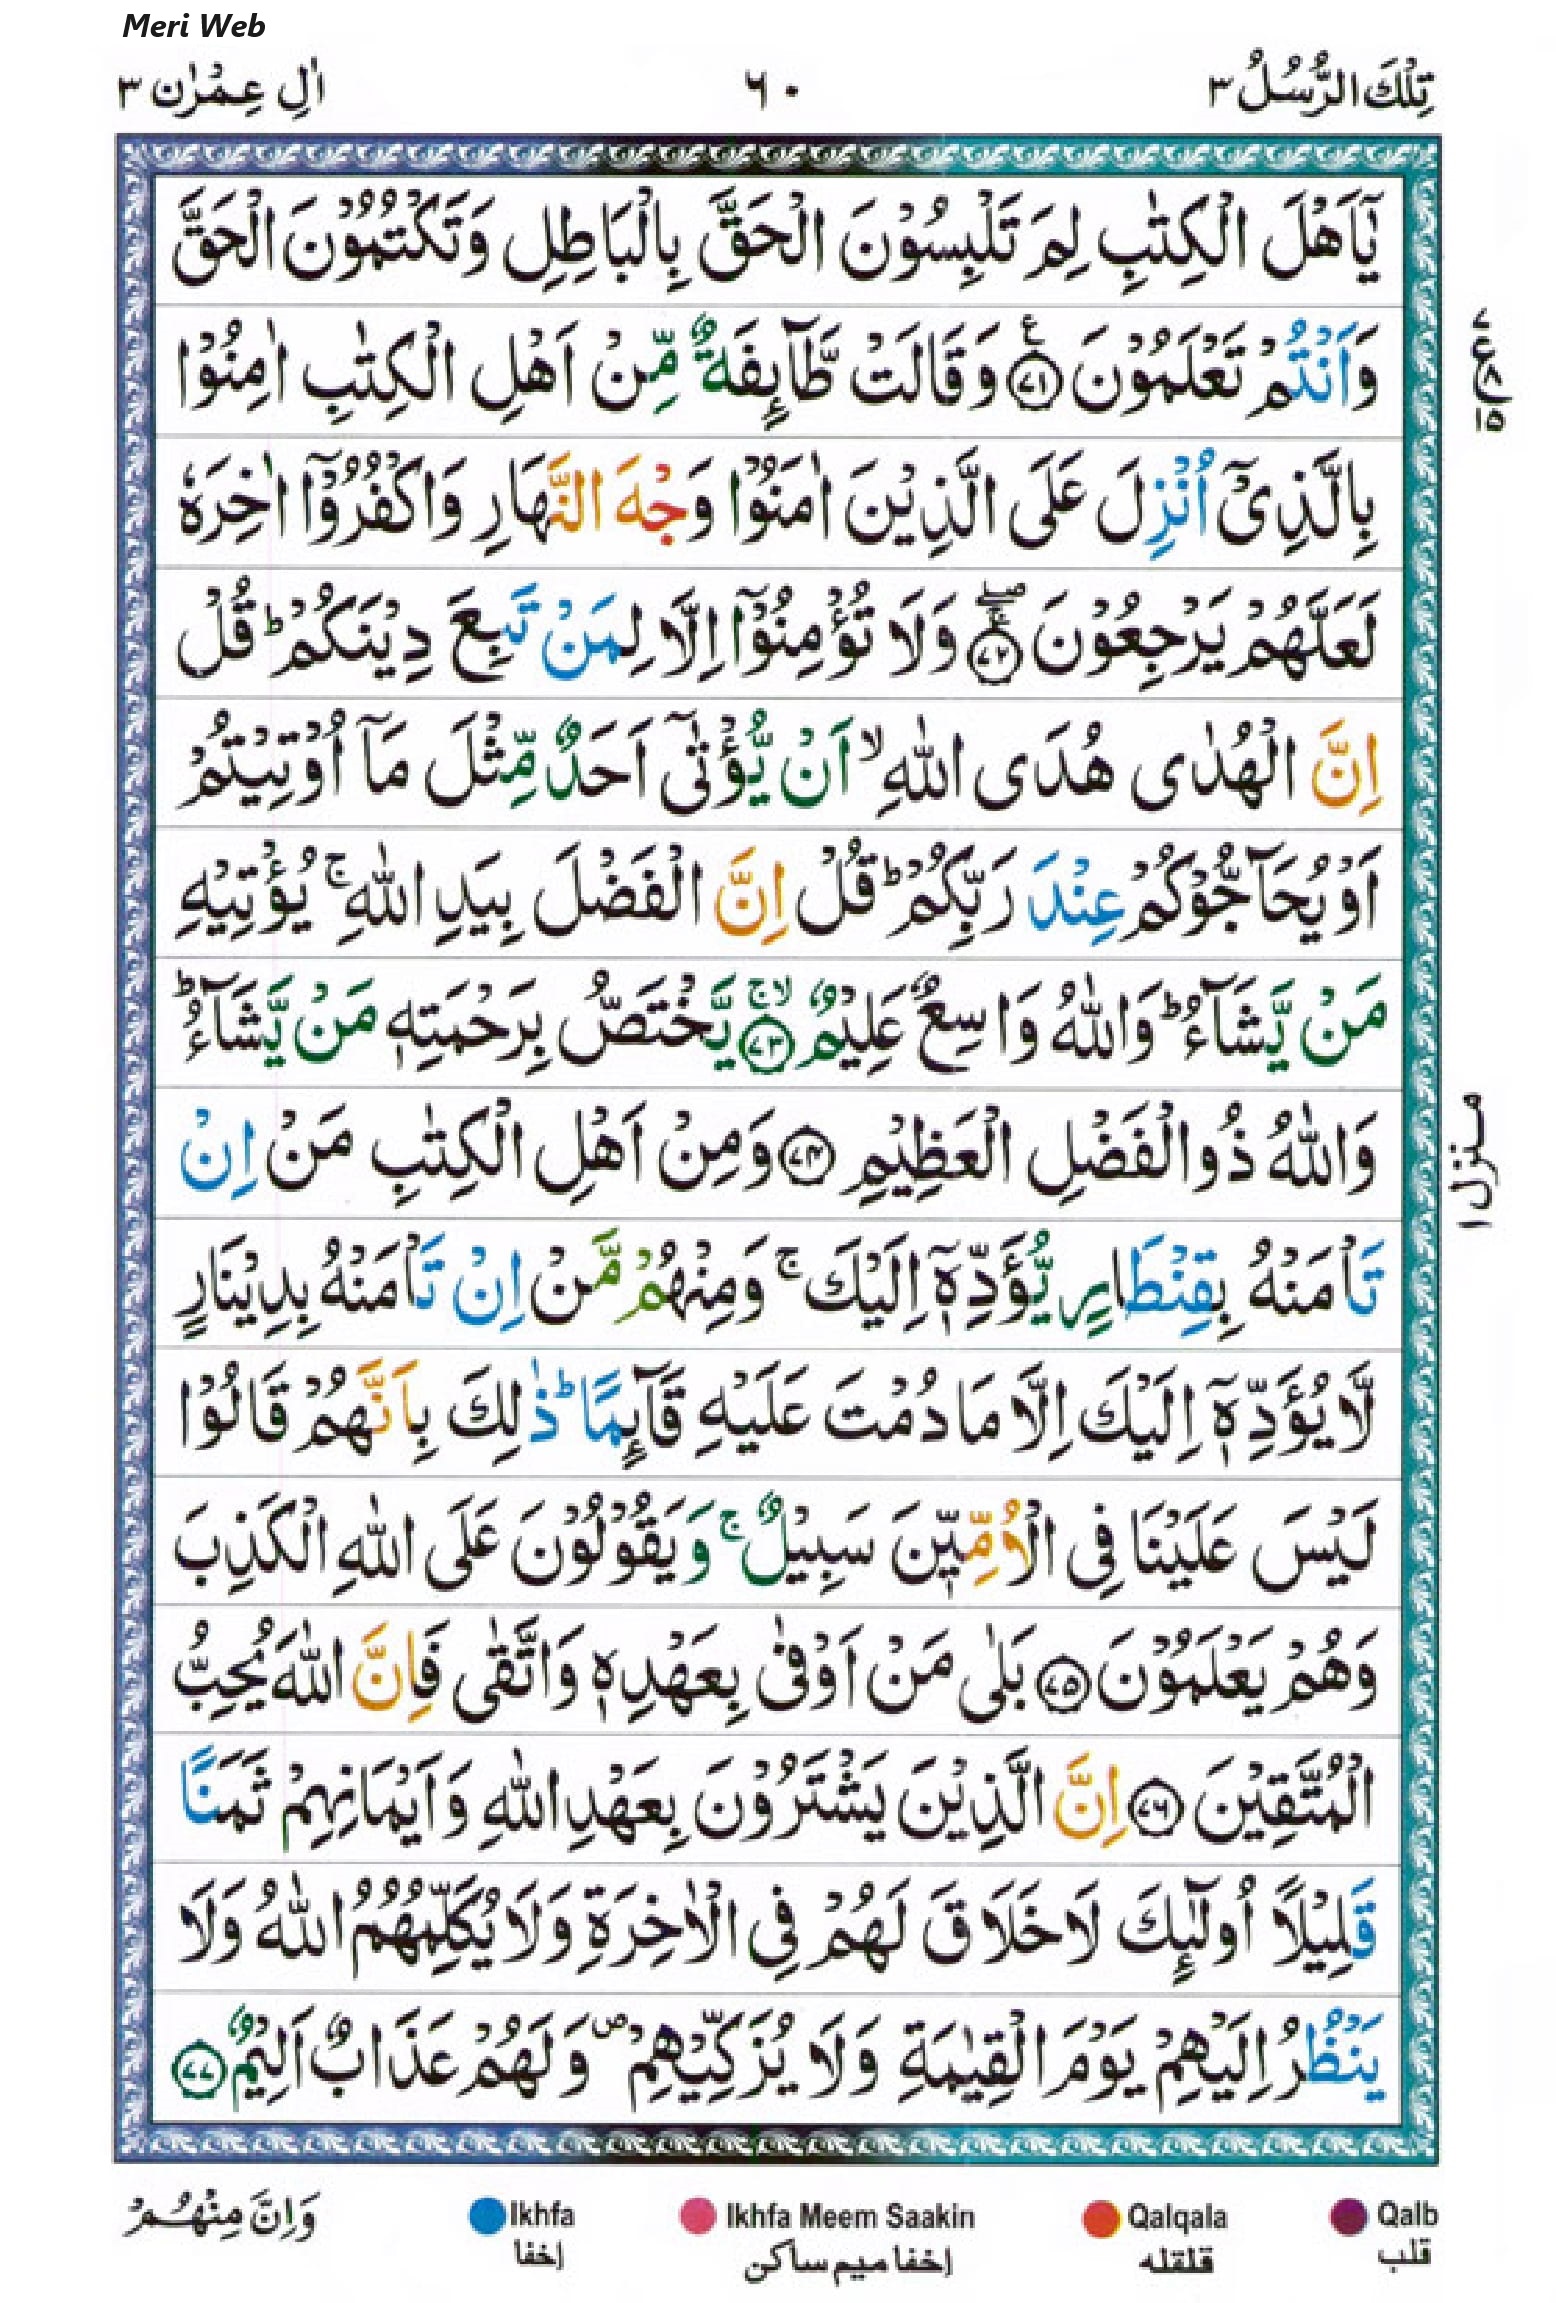 Meri Web
تِلْكَ الرُّسُلُ ٣
٦٠
اٰلِ عِمْرٰن ٣
يٰٓاَهْلَ الْكِتٰبِ لِمَ تَلْبِسُوْنَ الْحَقَّ بِالْبَاطِلِ وَتَكْتُمُوْنَ الْحَقَّ
وَاَنْتُمْ تَعْلَمُوْنَ ۧ﴿٧١﴾ وَقَالَتْ طَّآئِفَةٌ مِّنْ اَهْلِ الْكِتٰبِ اٰمِنُوْا
بِالَّذِىْۤ اُنْزِلَ عَلَى الَّذِيْنَ اٰمَنُوْا وَجْهَ النَّهَارِ وَاكْفُرُوْۤا اٰخِرَهٗ
لَعَلَّهُمْ يَرْجِعُوْنَ ۚۖ﴿٧٢﴾ وَلَا تُؤْمِنُوْۤا اِلَّا لِمَنْ تَبِعَ دِيْنَكُمْ ؕ قُلْ
اِنَّ الْهُدٰى هُدَى اللّٰهِ ۙ اَنْ يُّؤْتٰٓى اَحَدٌ مِّثْلَ مَاۤ اُوْتِيْتُمْ
اَوْ يُحَآجُّوْكُمْ عِنْدَ رَبِّكُمْ ؕ قُلْ اِنَّ الْفَضْلَ بِيَدِ اللّٰهِ ۚ يُؤْتِيْهِ
مَنْ يَّشَآءُ ؕ وَاللّٰهُ وَاسِعٌ عَلِيْمٌ ۚۙ﴿٧٣﴾ يَّخْتَصُّ بِرَحْمَتِهٖ مَنْ يَّشَآءُ ؕ
وَاللّٰهُ ذُوالْفَضْلِ الْعَظِيْمِ ﴿٧٤﴾ وَمِنْ اَهْلِ الْكِتٰبِ مَنْ اِنْ
تَاْمَنْهُ بِقِنْطَارٍ يُّؤَدِّهٖۤ اِلَيْكَ ۚ وَمِنْهُمْ مَّنْ اِنْ تَاْمَنْهُ بِدِيْنَارٍ
لَّا يُؤَدِّهٖۤ اِلَيْكَ اِلَّا مَا دُمْتَ عَلَيْهِ قَآئِمًا ؕ ذٰلِكَ بِاَنَّهُمْ قَالُوْا
لَيْسَ عَلَيْنَا فِى الْاُمِّيّٖنَ سَبِيْلٌ ۚ وَيَقُوْلُوْنَ عَلَى اللّٰهِ الْكَذِبَ
وَهُمْ يَعْلَمُوْنَ ﴿٧٥﴾ بَلٰى مَنْ اَوْفٰى بِعَهْدِهٖ وَاتَّقٰى فَاِنَّ اللّٰهَ يُحِبُّ
الْمُتَّقِيْنَ ﴿٧٦﴾ اِنَّ الَّذِيْنَ يَشْتَرُوْنَ بِعَهْدِ اللّٰهِ وَاَيْمَانِهِمْ ثَمَنًا
قَلِيْلًا اُولٰٓئِكَ لَا خَلَاقَ لَهُمْ فِى الْاٰخِرَةِ وَلَا يُكَلِّمُهُمُ اللّٰهُ وَلَا
يَنْظُرُ اِلَيْهِمْ يَوْمَ الْقِيٰمَةِ وَلَا يُزَكِّيْهِمْ ۖ وَلَهُمْ عَذَابٌ اَلِيْمٌ ﴿٧٧﴾
٧
ع
٨
١٥
منزل ١
وَاِنَّ مِنْهُمْ
Ikhfa
إخفا
Ikhfa Meem Saakin
إخفا ميم ساكن
Qalqala
قلقله
Qalb
قلب